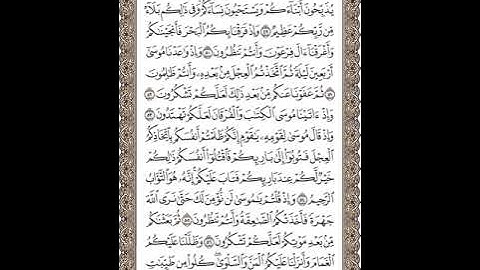 يُذَبِّحُونَ أَبْنَآءَكُمْ وَيَسْتَحْيُونَ نِسَآءَكُمْ وَفِى ذَٰلِكُم بَلَآءٌ
مِّن رَّبِّكُمْ عَظِيمٌ ۝٤٩ وَإِذْ فَرَقْنَا بِكُمُ ٱلْبَحْرَ فَأَنجَيْنَٰكُمْ
وَأَغْرَقْنَآ ءَالَ فِرْعَوْنَ وَأَنتُمْ تَنظُرُونَ ۝٥٠ وَإِذْ وَٰعَدْنَا مُوسَىٰٓ
أَرْبَعِينَ لَيْلَةً ثُمَّ ٱتَّخَذْتُمُ ٱلْعِجْلَ مِنۢ بَعْدِهِۦ وَأَنتُمْ ظَٰلِمُونَ
۝٥١ ثُمَّ عَفَوْنَا عَنكُم مِّنۢ بَعْدِ ذَٰلِكَ لَعَلَّكُمْ تَشْكُرُونَ ۝٥٢
وَإِذْ ءَاتَيْنَا مُوسَى ٱلْكِتَٰبَ وَٱلْفُرْقَانَ لَعَلَّكُمْ تَهْتَدُونَ ۝٥٣
وَإِذْ قَالَ مُوسَىٰ لِقَوْمِهِۦ يَٰقَوْمِ إِنَّكُمْ ظَلَمْتُمْ أَنفُسَكُم بِٱتِّخَاذِكُمُ
ٱلْعِجْلَ فَتُوبُوٓا۟ إِلَىٰ بَارِئِكُمْ فَٱقْتُلُوٓا۟ أَنفُسَكُمْ ذَٰلِكُمْ
خَيْرٌ لَّكُمْ عِندَ بَارِئِكُمْ فَتَابَ عَلَيْكُمْ إِنَّهُۥ هُوَ ٱلتَّوَّابُ
ٱلرَّحِيمُ ۝٥٤ وَإِذْ قُلْتُمْ يَٰمُوسَىٰ لَن نُّؤْمِنَ لَكَ حَتَّىٰ نَرَى ٱللَّهَ
جَهْرَةً فَأَخَذَتْكُمُ ٱلصَّٰعِقَةُ وَأَنتُمْ تَنظُرُونَ ۝٥٥ ثُمَّ بَعَثْنَٰكُم
مِّنۢ بَعْدِ مَوْتِكُمْ لَعَلَّكُمْ تَشْكُرُونَ ۝٥٦ وَظَلَّلْنَا عَلَيْكُمُ
ٱلْغَمَامَ وَأَنزَلْنَا عَلَيْكُمُ ٱلْمَنَّ وَٱلسَّلْوَىٰ كُلُوا۟ مِن طَيِّبَٰتِ